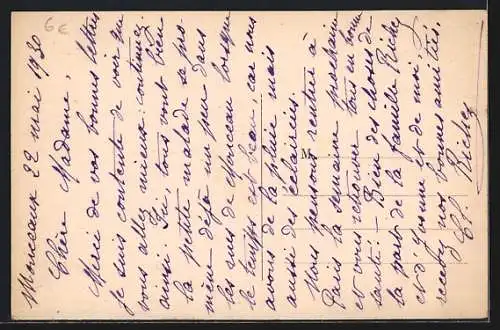 6€
Monceaux 22 mai 1930
Chère Madame,
Merci de vos bonnes lettres
je suis contente de voir que
vous allez mieux. continuez
ainsi. Ici, tous vont bien
la petite malade se pro
mène déjà un peu dans
les rues de Monceau lorsque
le temps est beau car nous
avons de la pluie mais
aussi des éclaircies.
Nous pensons rentrer à
Paris la semaine prochaine
et vous retrouver tous en bonne
santé. - Bien des choses de
la part de la famille Riche
et d'Yvonne et de moi
recevez nos bonnes amitiés.
Cl. Riche